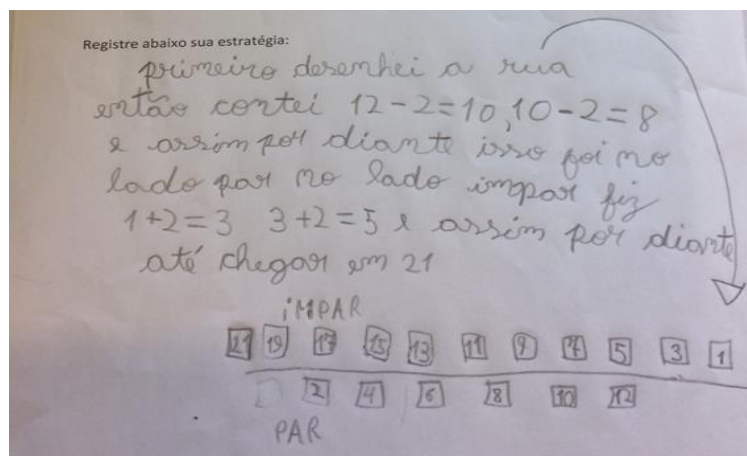 Registre abaixo sua estratégia:
primeiro desenhei a rua
então contei 12-2=10, 10-2=8
e assim por diante isso foi no
lado par no lado impar fiz
1+2=3 3+2=5 e assim por diante
até chegar em 21
iMPAR
21 19 17 15 13 11 9 7 5 3 1
2 4 6 8 10 12
PAR